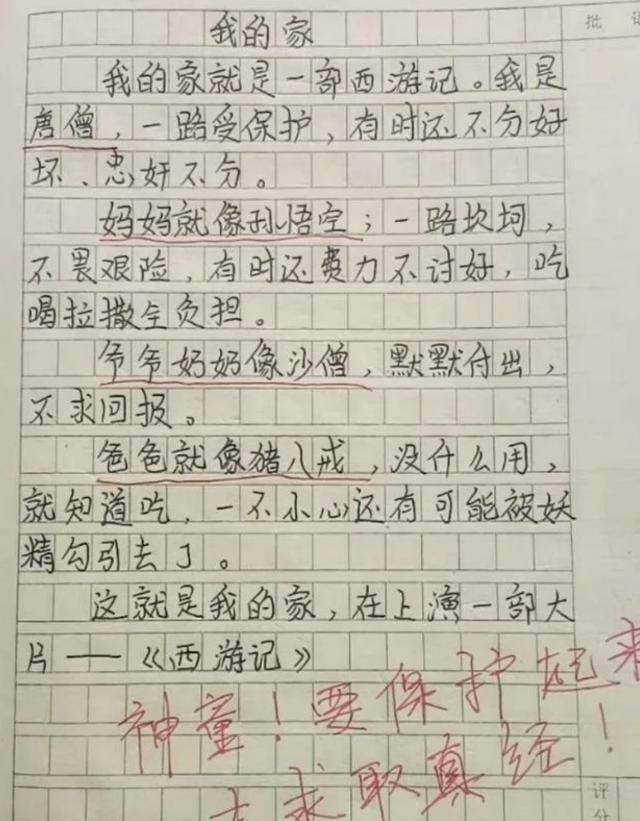 批
我的家
我的家就是一部西游记。我是
唐僧，一路受保护，有时还不分好
坏、忠奸不分。
妈妈就像孙悟空；一路坎坷，
不畏艰险，有时还费力不讨好，吃
喝拉撒全负担。
爷爷奶奶像沙僧，默默付出，
不求回报。
爸爸就像猪八戒，没什么用，
就知道吃，一不小心还有可能被妖
精勾引去了。
这就是我的家，在上演一部大
片——《西游记》
神童！要保护起来
去求取真经！
评
分